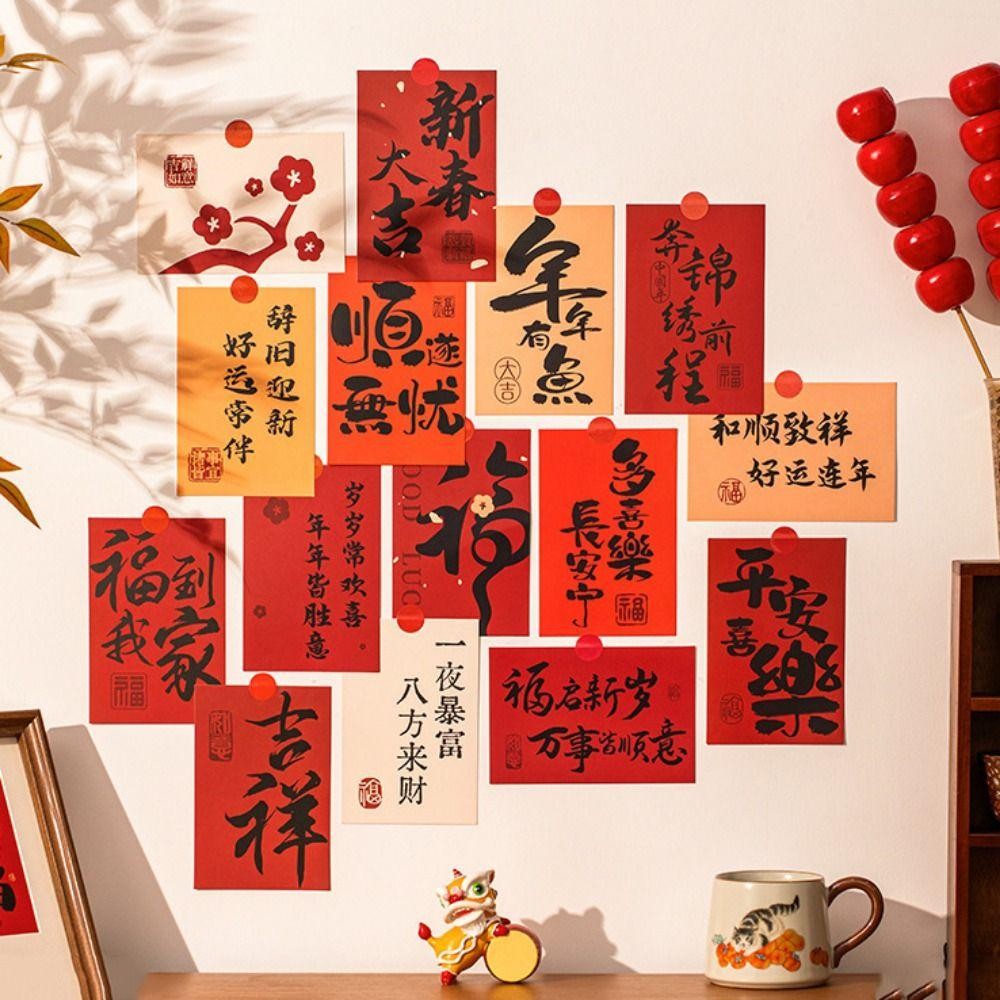 吉祥
如意
新春
大吉
年年
有魚
大吉
奔錦
绣前
程
中国年
福
辞旧迎新
好运常伴
順遂
無忧
福
和顺致祥
好运连年
福
岁岁常欢喜
年年皆胜意
福
GOOD LUCK
多喜樂
長安宁
福
平安
喜樂
福
福到
我家
福
一夜暴富
八方来财
福
福启新岁
万事皆顺意
吉祥
如意